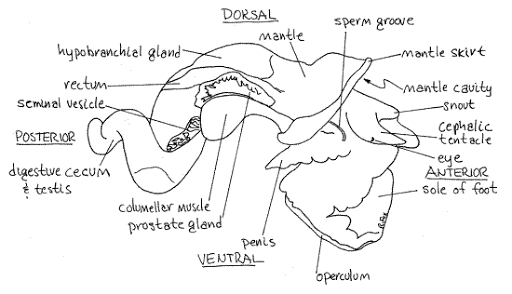 DORSAL
sperm groove
mantle
hypobranchial gland
mantle skirt
rectum
mantle cavity
seminal vesicle
snout
POSTERIOR
cephalic
tentacle
eye
digestive cecum
& testis
ANTERIOR
sole of foot
columellar muscle
prostate gland
penis
VENTRAL
operculum